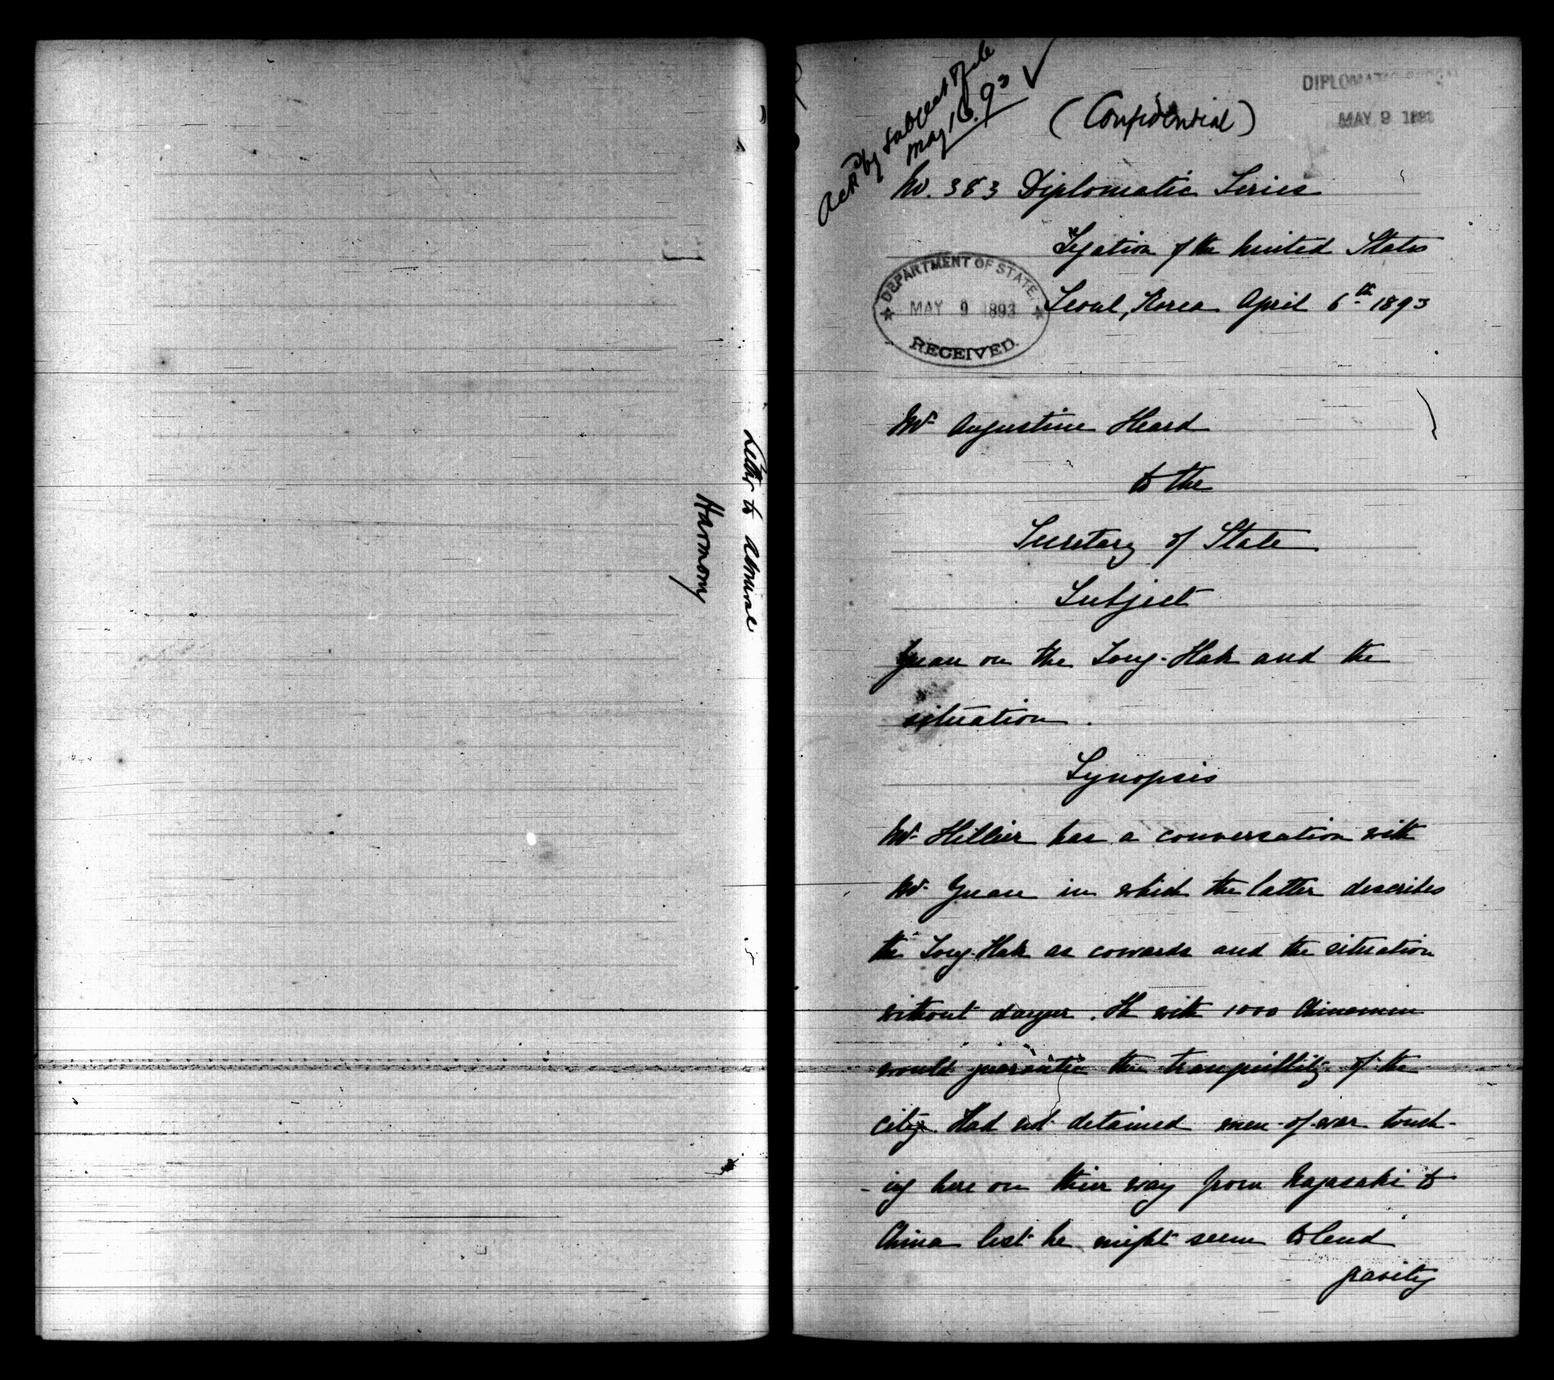 Letter to Admiral
Harmony
Ackd by subject file
May 16. 93
(Confidential)
DIPLOMATIC BUREAU
MAY 9 1893
No. 383 Diplomatic Series
Legation of the United States
Seoul, Korea April 6th 1893
DEPARTMENT OF STATE.
MAY 9 1893
RECEIVED.
Mr Augustine Heard
to the
Secretary of State
Subject
Yuan on the Tong-Hak and the
situation.
Synopsis
Mr. Hillier has a conversation with
Mr. Yuan in which the latter describes
the Tong-Hak as cowards and the situation
without danger. He with 1000 Chinamen
would guarantee the tranquillity of the
city. Had not detained men-of-war touch-
ing here on their way from Nagasaki to
China lest he might seem to lend
gravity